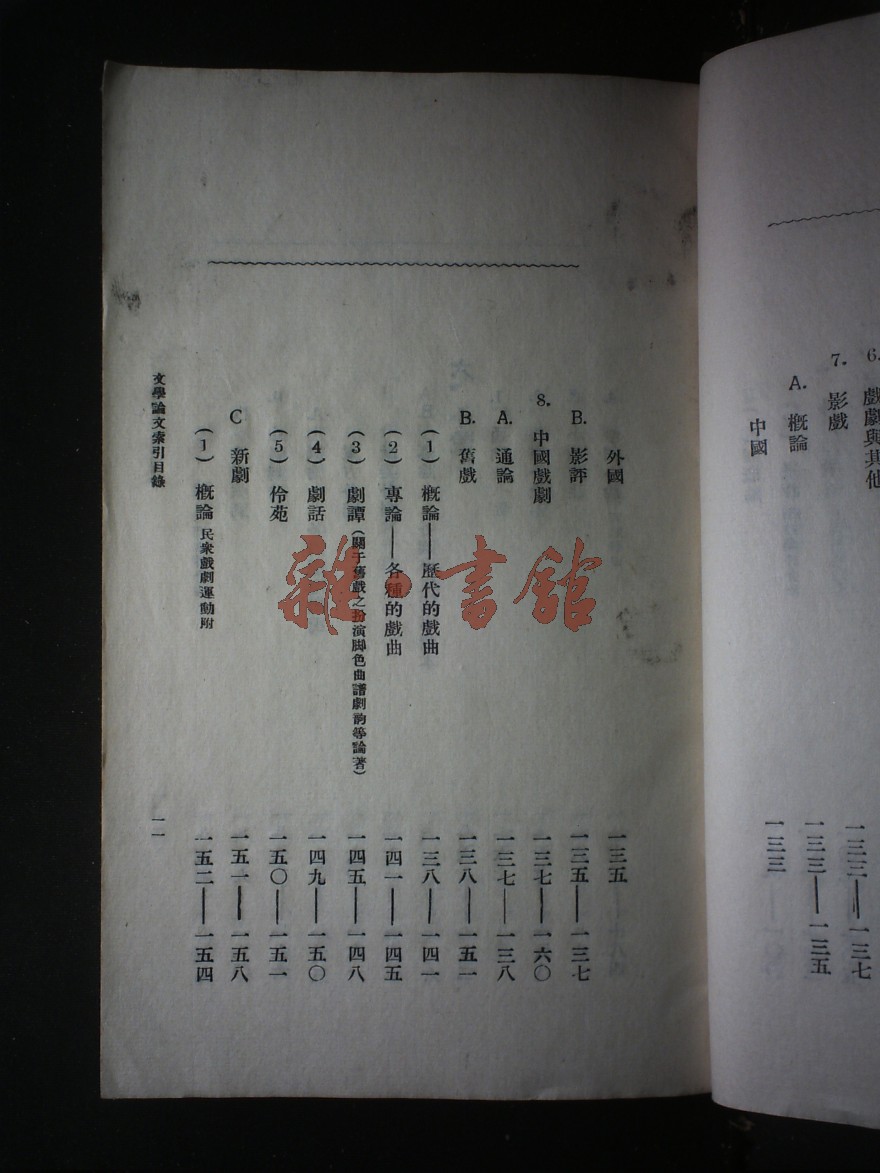 6. 戲劇與其他
7. 影戲 一三三——一三七
A. 概論 一三三——一三五
中國 一三三
外國 一三五
B. 影評 一三五——一三七
8. 中國戲劇 一三七——一六〇
A. 通論 一三七——一三八
B. 舊戲 一三八——一五一
(1) 概論——歷代的戲曲 一三八——一四一
(2) 專論——各種的戲曲 一四一——一四五
(3) 劇譚(關于舊戲之扮演脚色曲譜劇韵等論著) 一四五——一四八
(4) 劇話 一四九——一五〇
(5) 伶苑 一五〇——一五一
C 新劇 一五一——一五八
(1) 概論 民衆戲劇運動附 一五二——一五四
文學論文索引目錄 一一
雜·書館